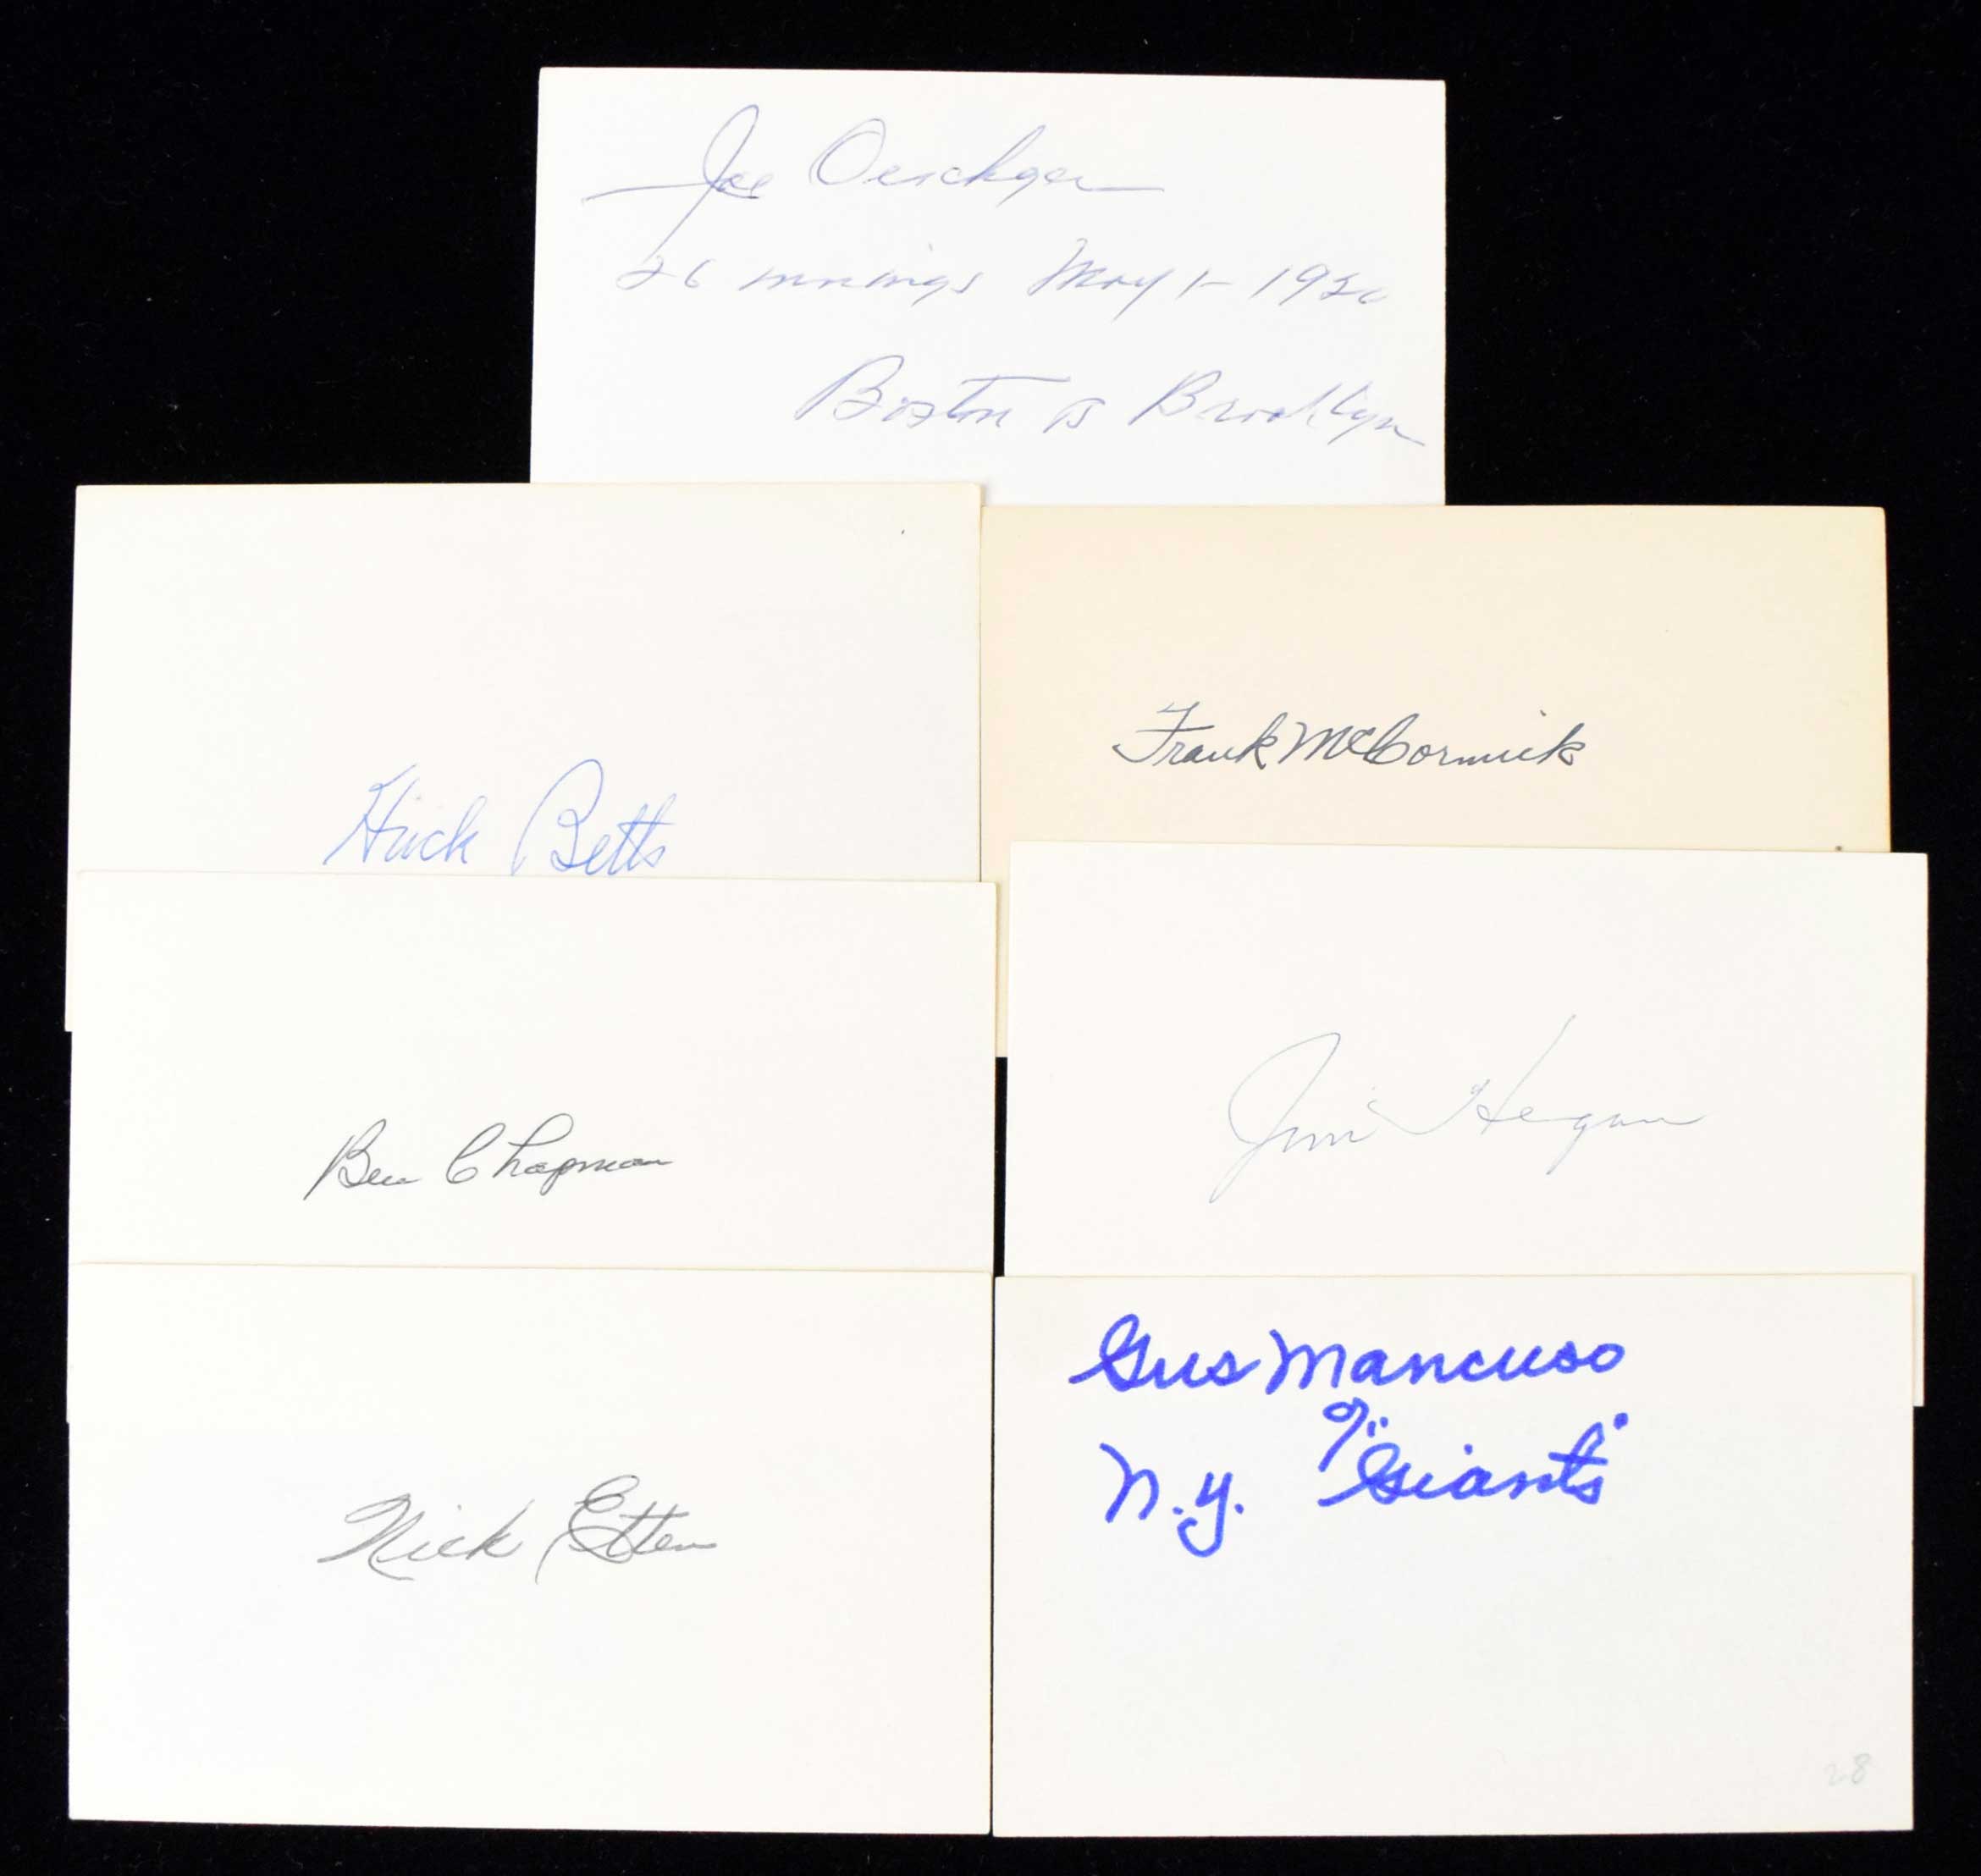 Joe Oeschger
26 innings May 1- 1920
Boston vs Brooklyn
Huck Betts
Frank McCormick
Ben Chapman
Jim Hegan
Nick Etten
Gus Mancuso
of
N.Y. "Giants"
28